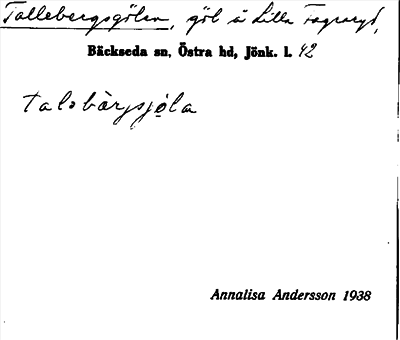 Tallebergsgölen, göl å Lilla Fagraryd,
Bäckseda sn, Östra hd, Jönk. l. 42
talsbärjsjøla
Annalisa Andersson 1938